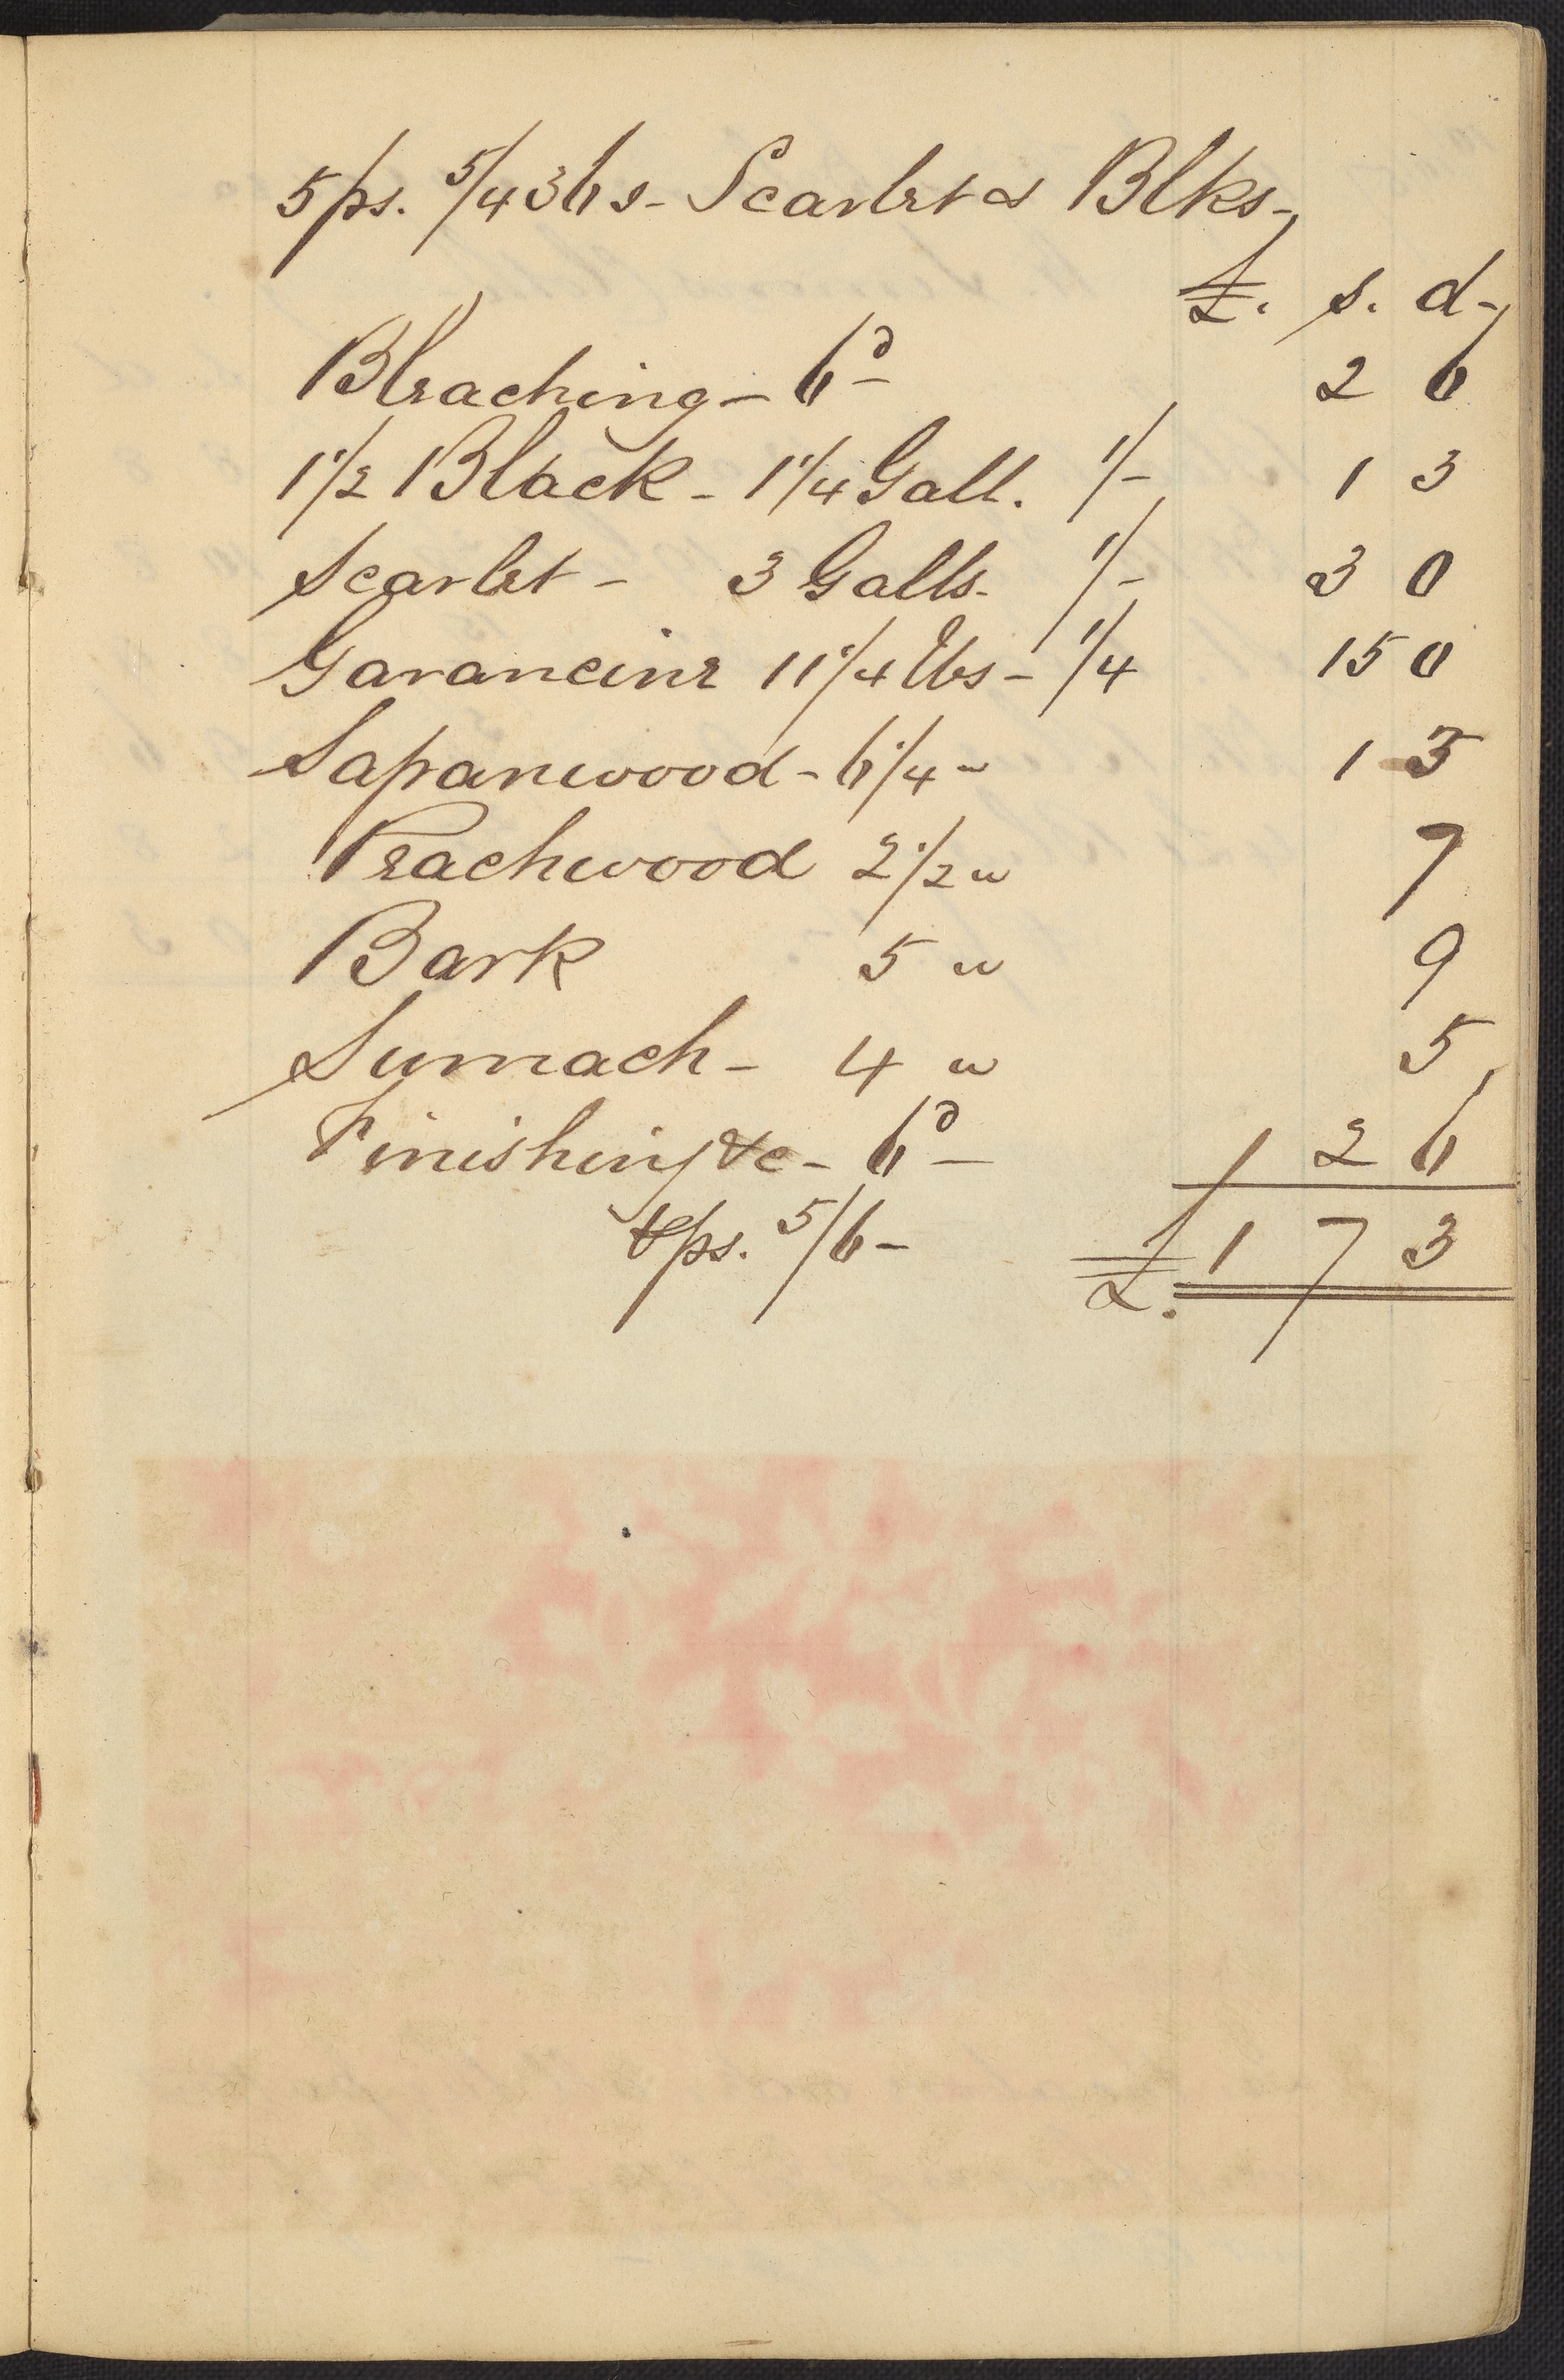 5 ps. 5/4 36s - Scarlet & Blks -
£. s. d -
Bleaching - 6d 2 6
1 1/2 Black - 1 1/4 Gall. 1/- 1 3
Scarlet - 3 Galls - 1/- 3 0
Garancine 11 1/4 lbs - 1/4 15 0
Sapanwood - 6 1/4 " 1 3
Peachwood 2 1/2 " 7
Bark 5 " 9
Sumach - 4 " 5
Finishing &c - 6d 2 6
ps. 5/6 - £. 1 7 3